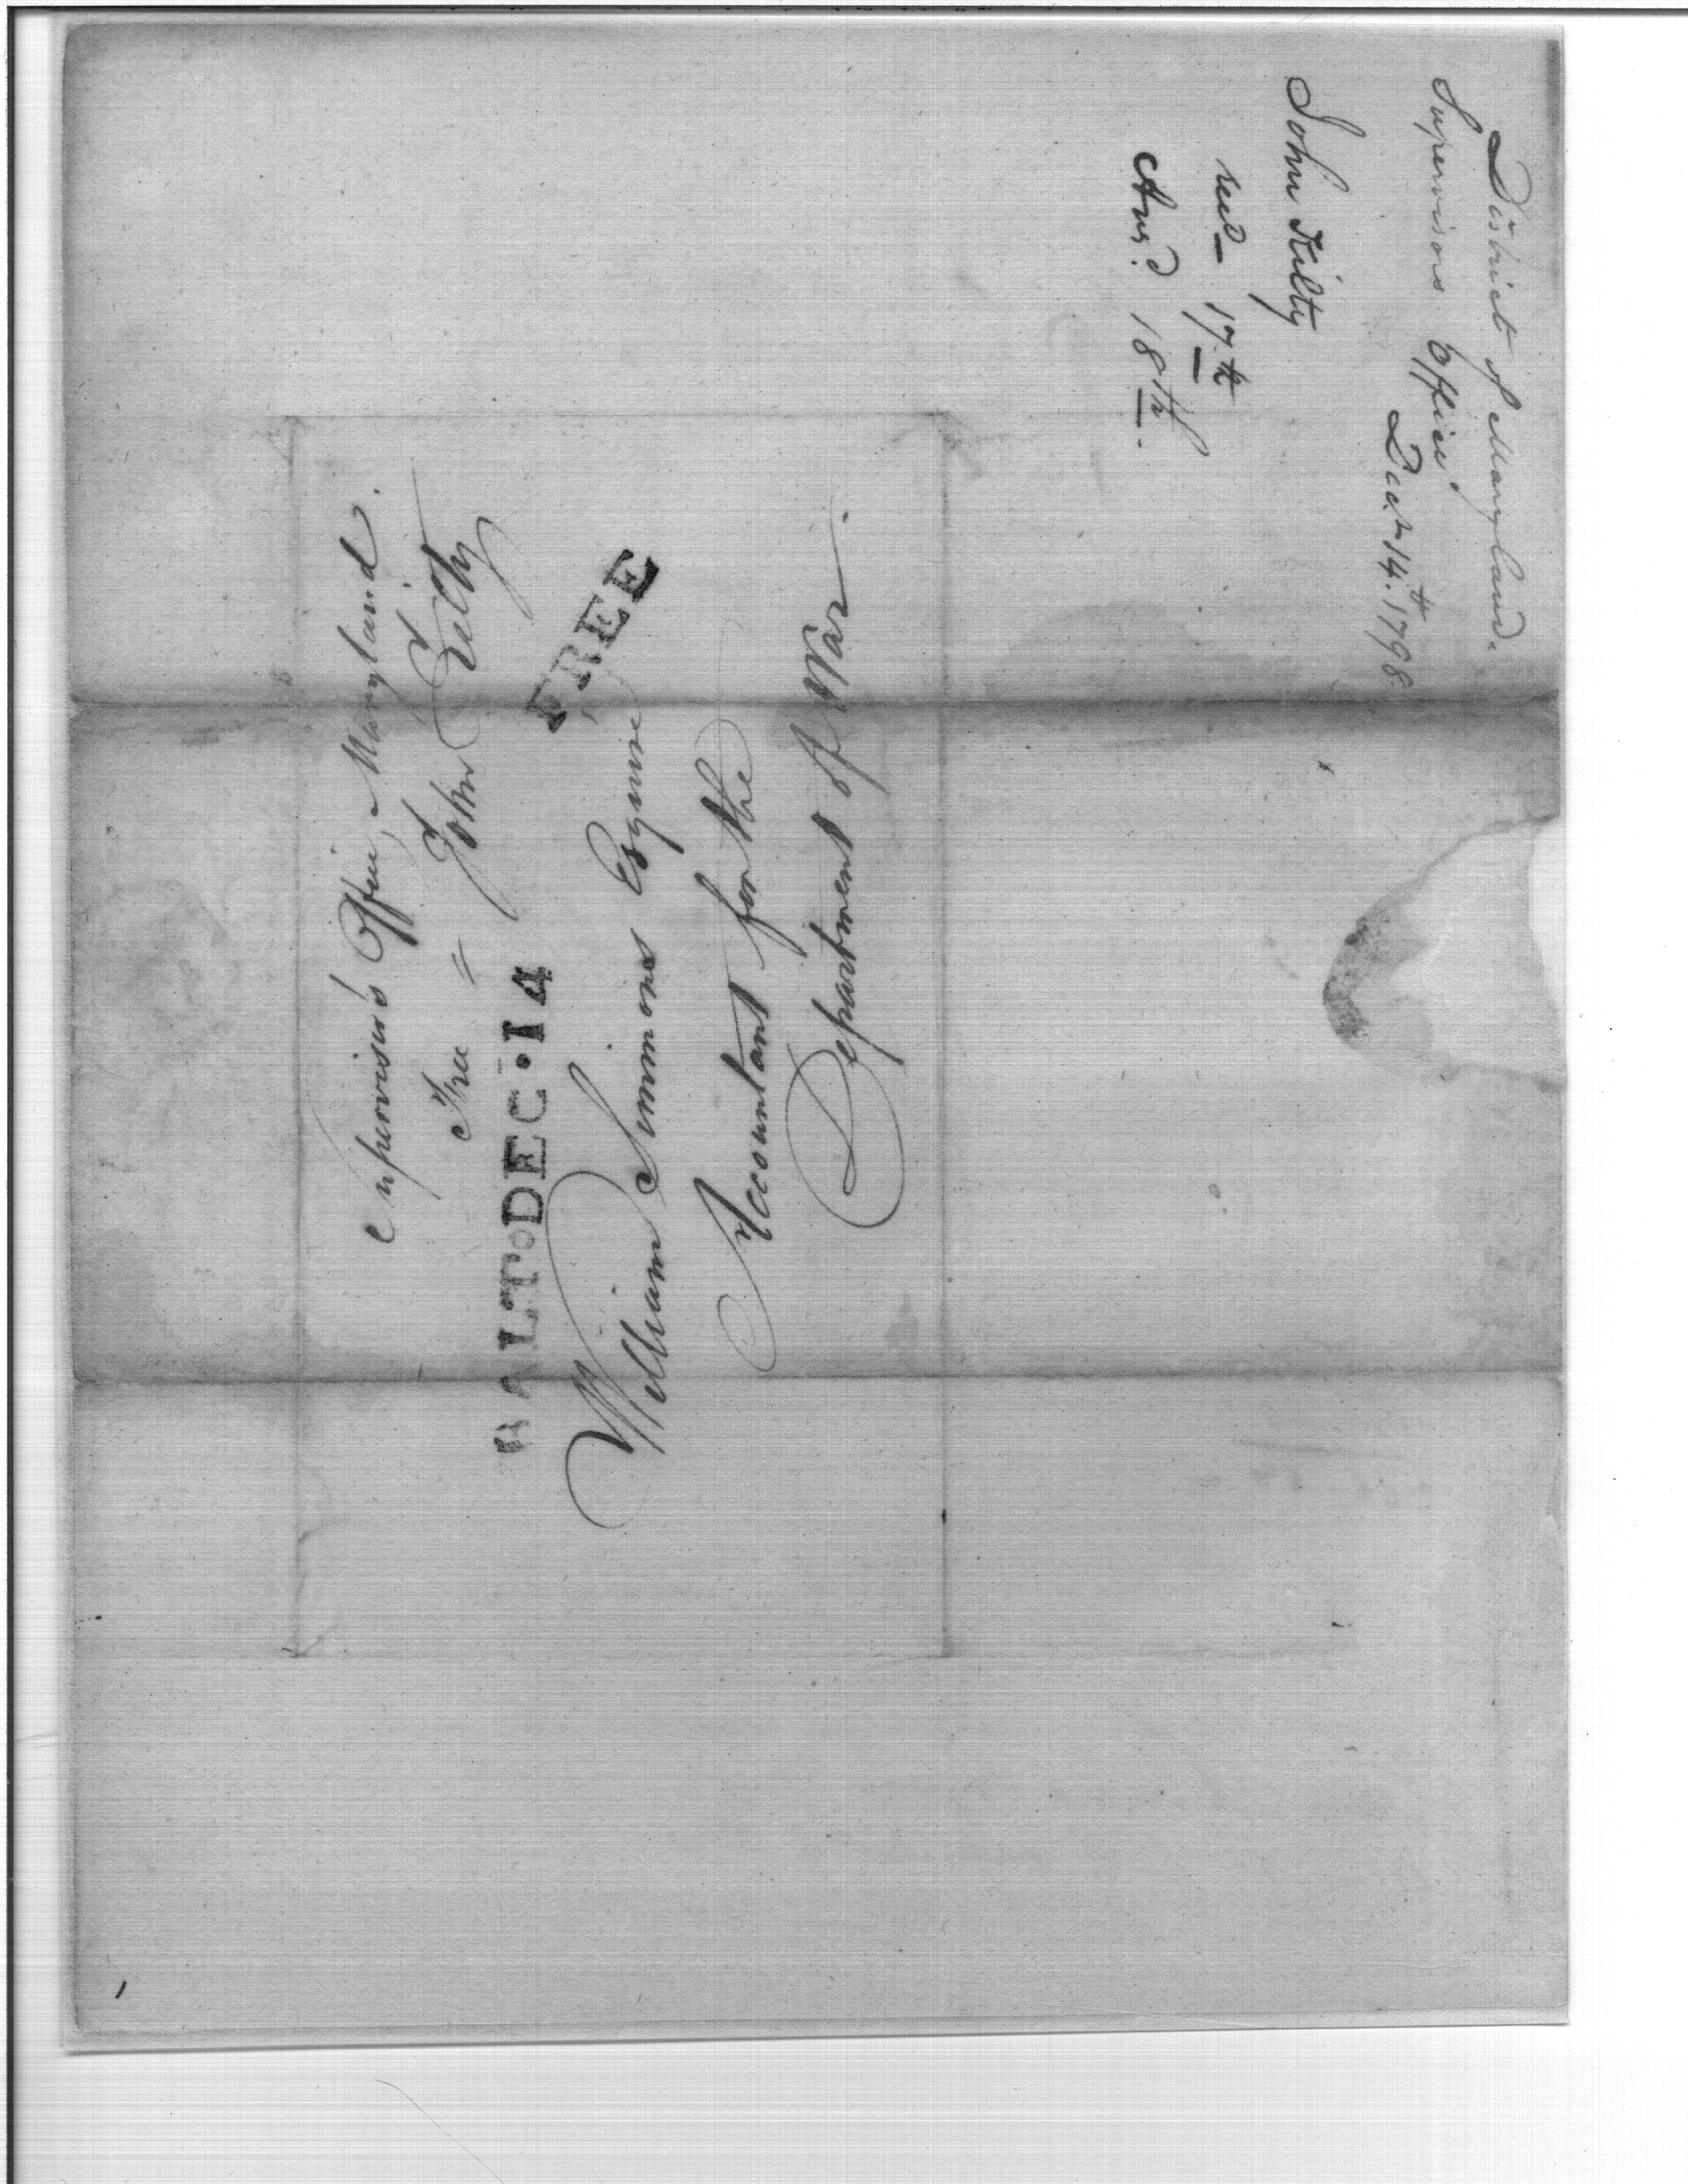 District of Maryland.
Supervisors Office
Decr. 14th. 1798
John Kilty
recd 17th
Ansd. 18th.
Supervisor's Office, Maryland.
Free = John Kilty
BALT. DEC. 14
FREE
William Simmons Esquire
Accountant for the
Department of War.